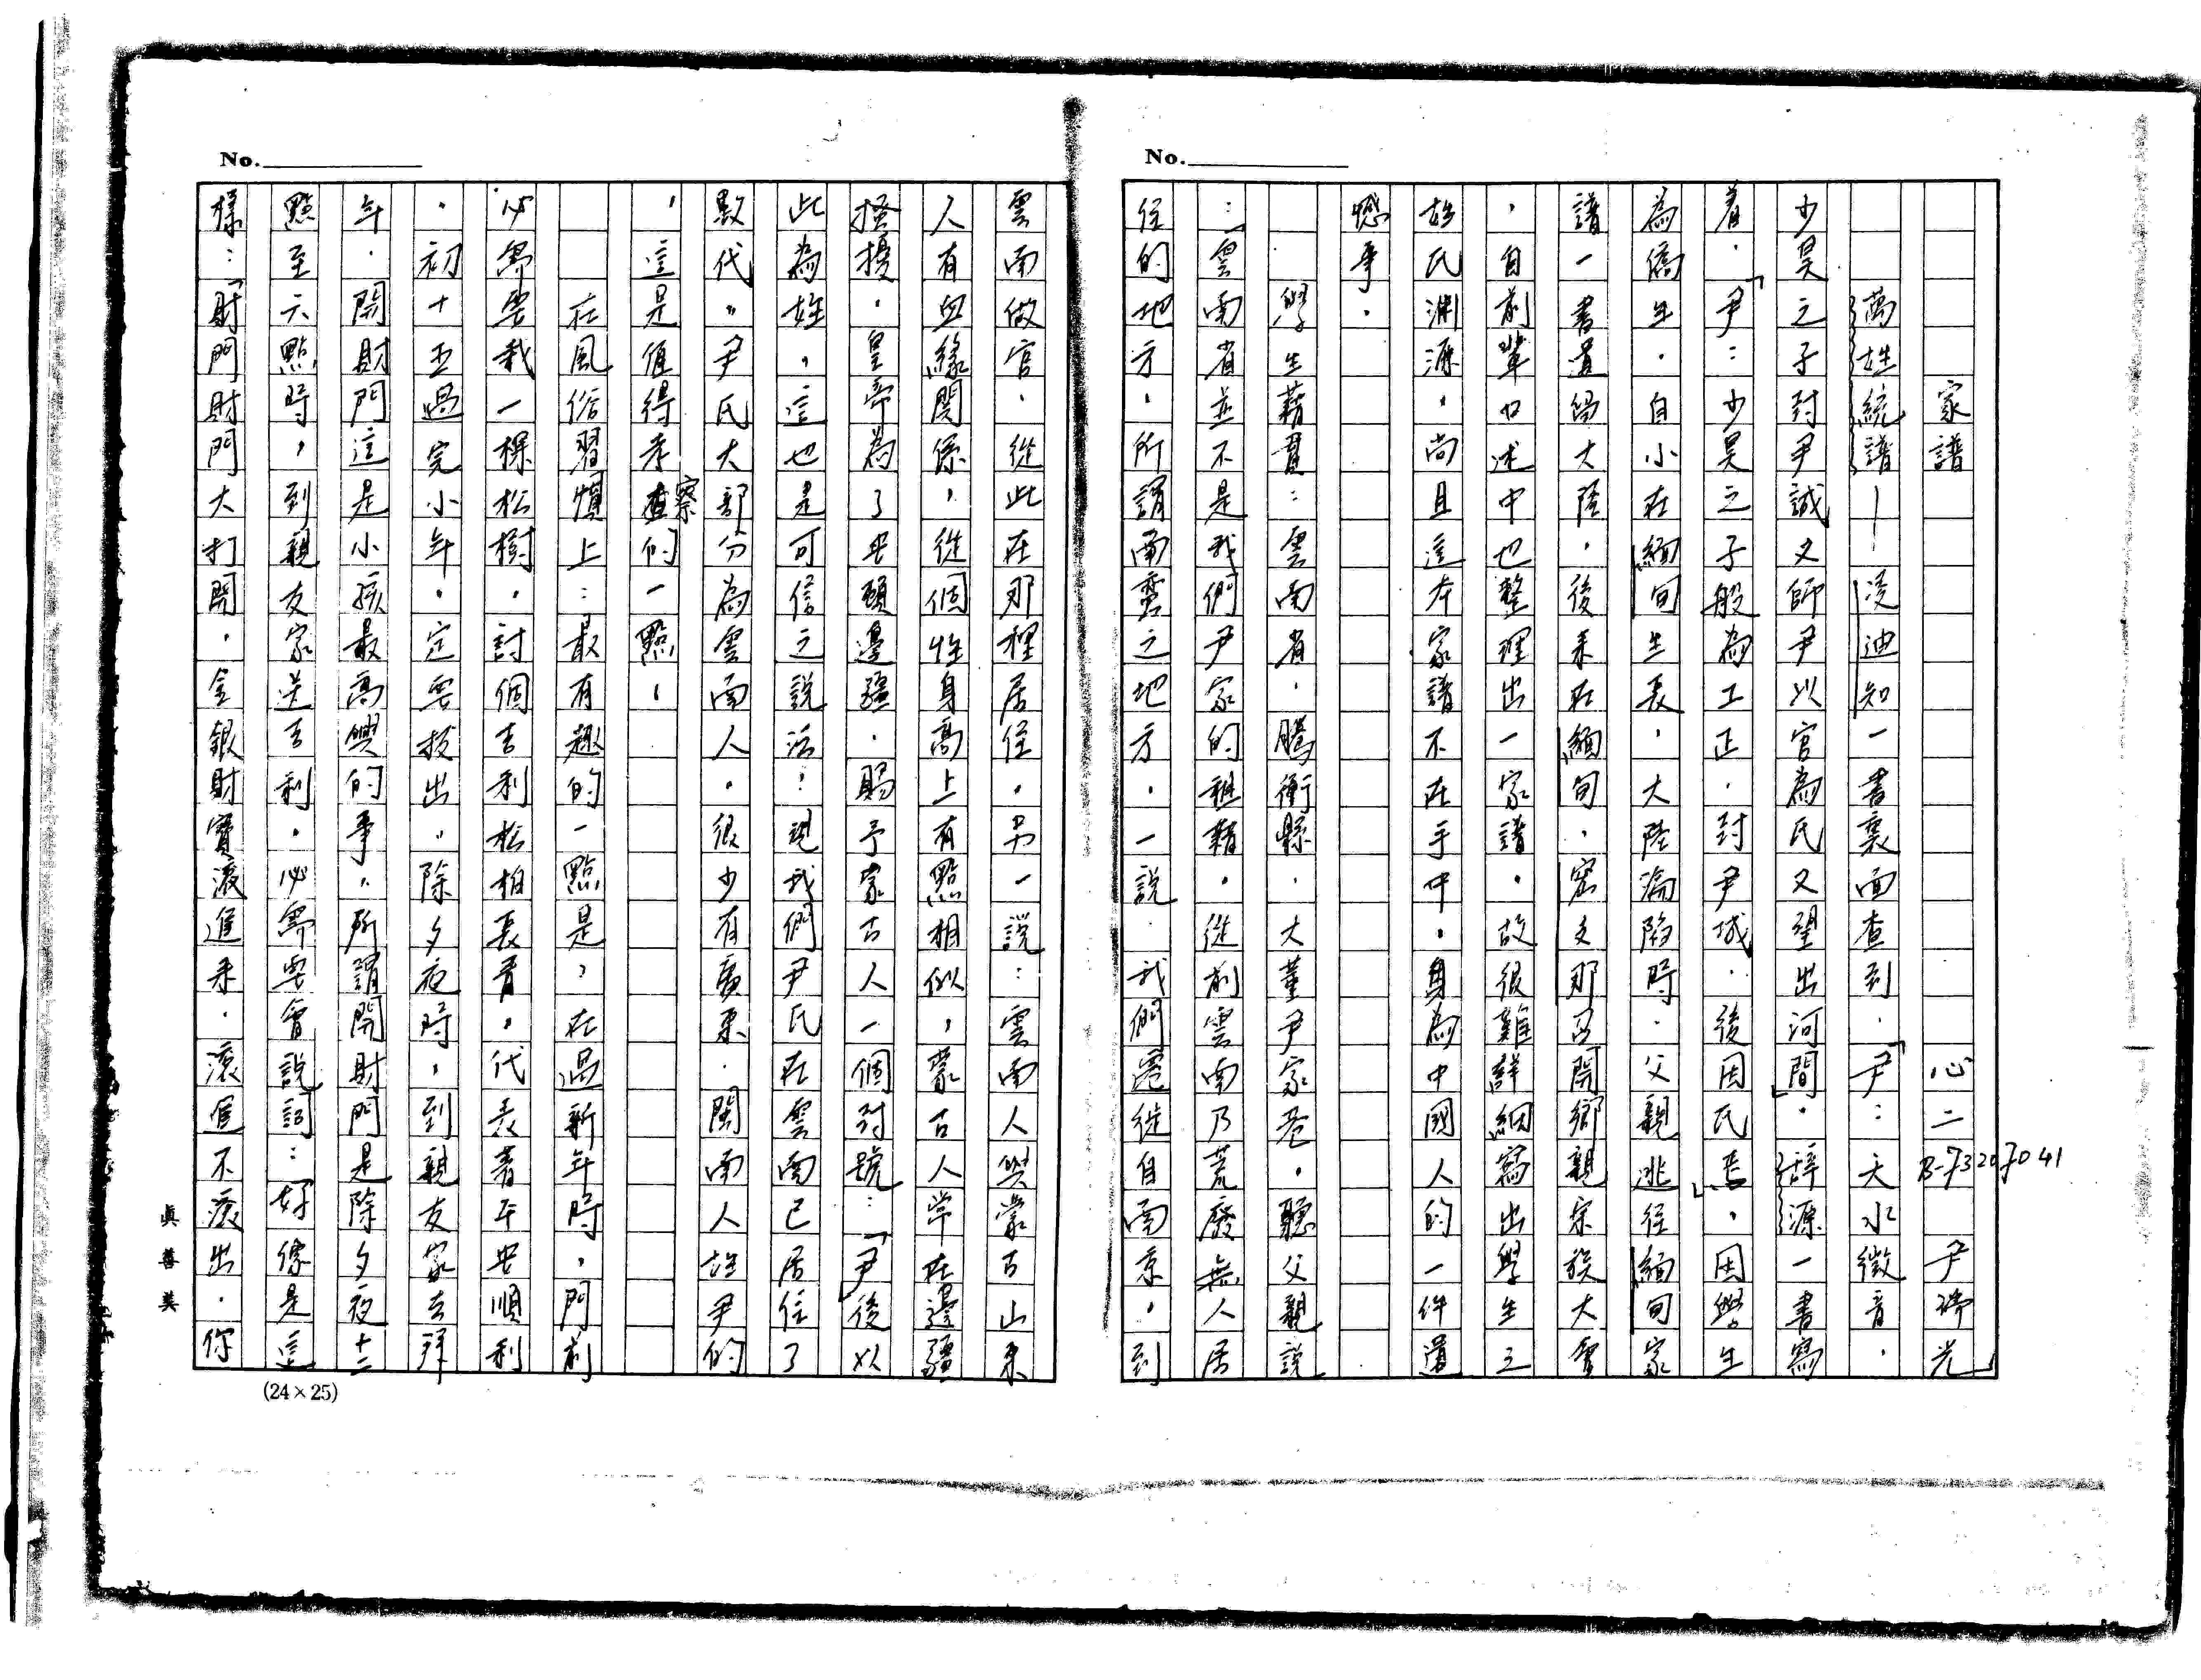 No.
No.
家譜　心二　B-73207041　尹瑞光
萬姓統譜——凌迪知一書裏面查到．「尹：天水徵音．
少昊之子封尹誠又師尹以官為氏又望出河間」．辭源一書寫
着．「尹：少昊之子般為工正．封尹城．後因氏焉」，因學生
為僑生．自小在緬甸生長，大陸淪陷時．父親逃徑緬甸家
譜一書遺留大陸，後來在緬甸．密支那召開鄉親宗族大會
，自前輩口述中也整理出一家譜．故很難詳細寫出學生之
姓氏淵源，尚且這本家譜不在手中．身為中國人的一件遺
憾事．
學生藉貫：雲南省．騰衝縣．大董尹家巷．聽父親說
：雲南省並不是我們尹家的祖籍．從前雲南乃荒廢無人居
住的地方．所謂南蠻之地方．一說．我們遷徙自南京．到
雲南做官．從此在那裡居住．另一說：雲南人與蒙古山來
人有血緣関係，從個性身高上有點相似，蒙古人常在邊疆
搔擾．皇帝為了安頓邊疆．賜予蒙古人一個封號：「尹」後以
此為姓，這也是可信之說法：現我們尹氏在雲南已居住了
數代．尹氏大部分為雲南人．很少有廣東．閩南人姓尹的
，這是值得考查察的一點．
在風俗習慣上：最有趣的一點是，在過新年時，門前
必需要栽一棵松樹．討個吉利松柏長青，代表着平安順利
．初十五過完小年．定要拔出．除夕夜時，到親友家去拜
年．開財門這是小孩最高興的事．所謂開財門是除夕夜十二
點至六點時，到親友家送吉利．必需要會說詞：好像是這
樣：「財門財門大打開．金銀財寶滾進來．滾進不滾出．你
(24×25)
真善美